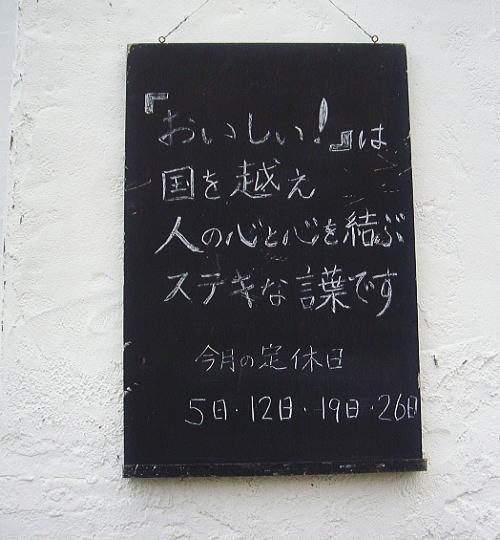 『おいしい!』は
国を越え
人の心と心を結ぶ
ステキな言葉です
今月の定休日
5日・12日・19日・26日